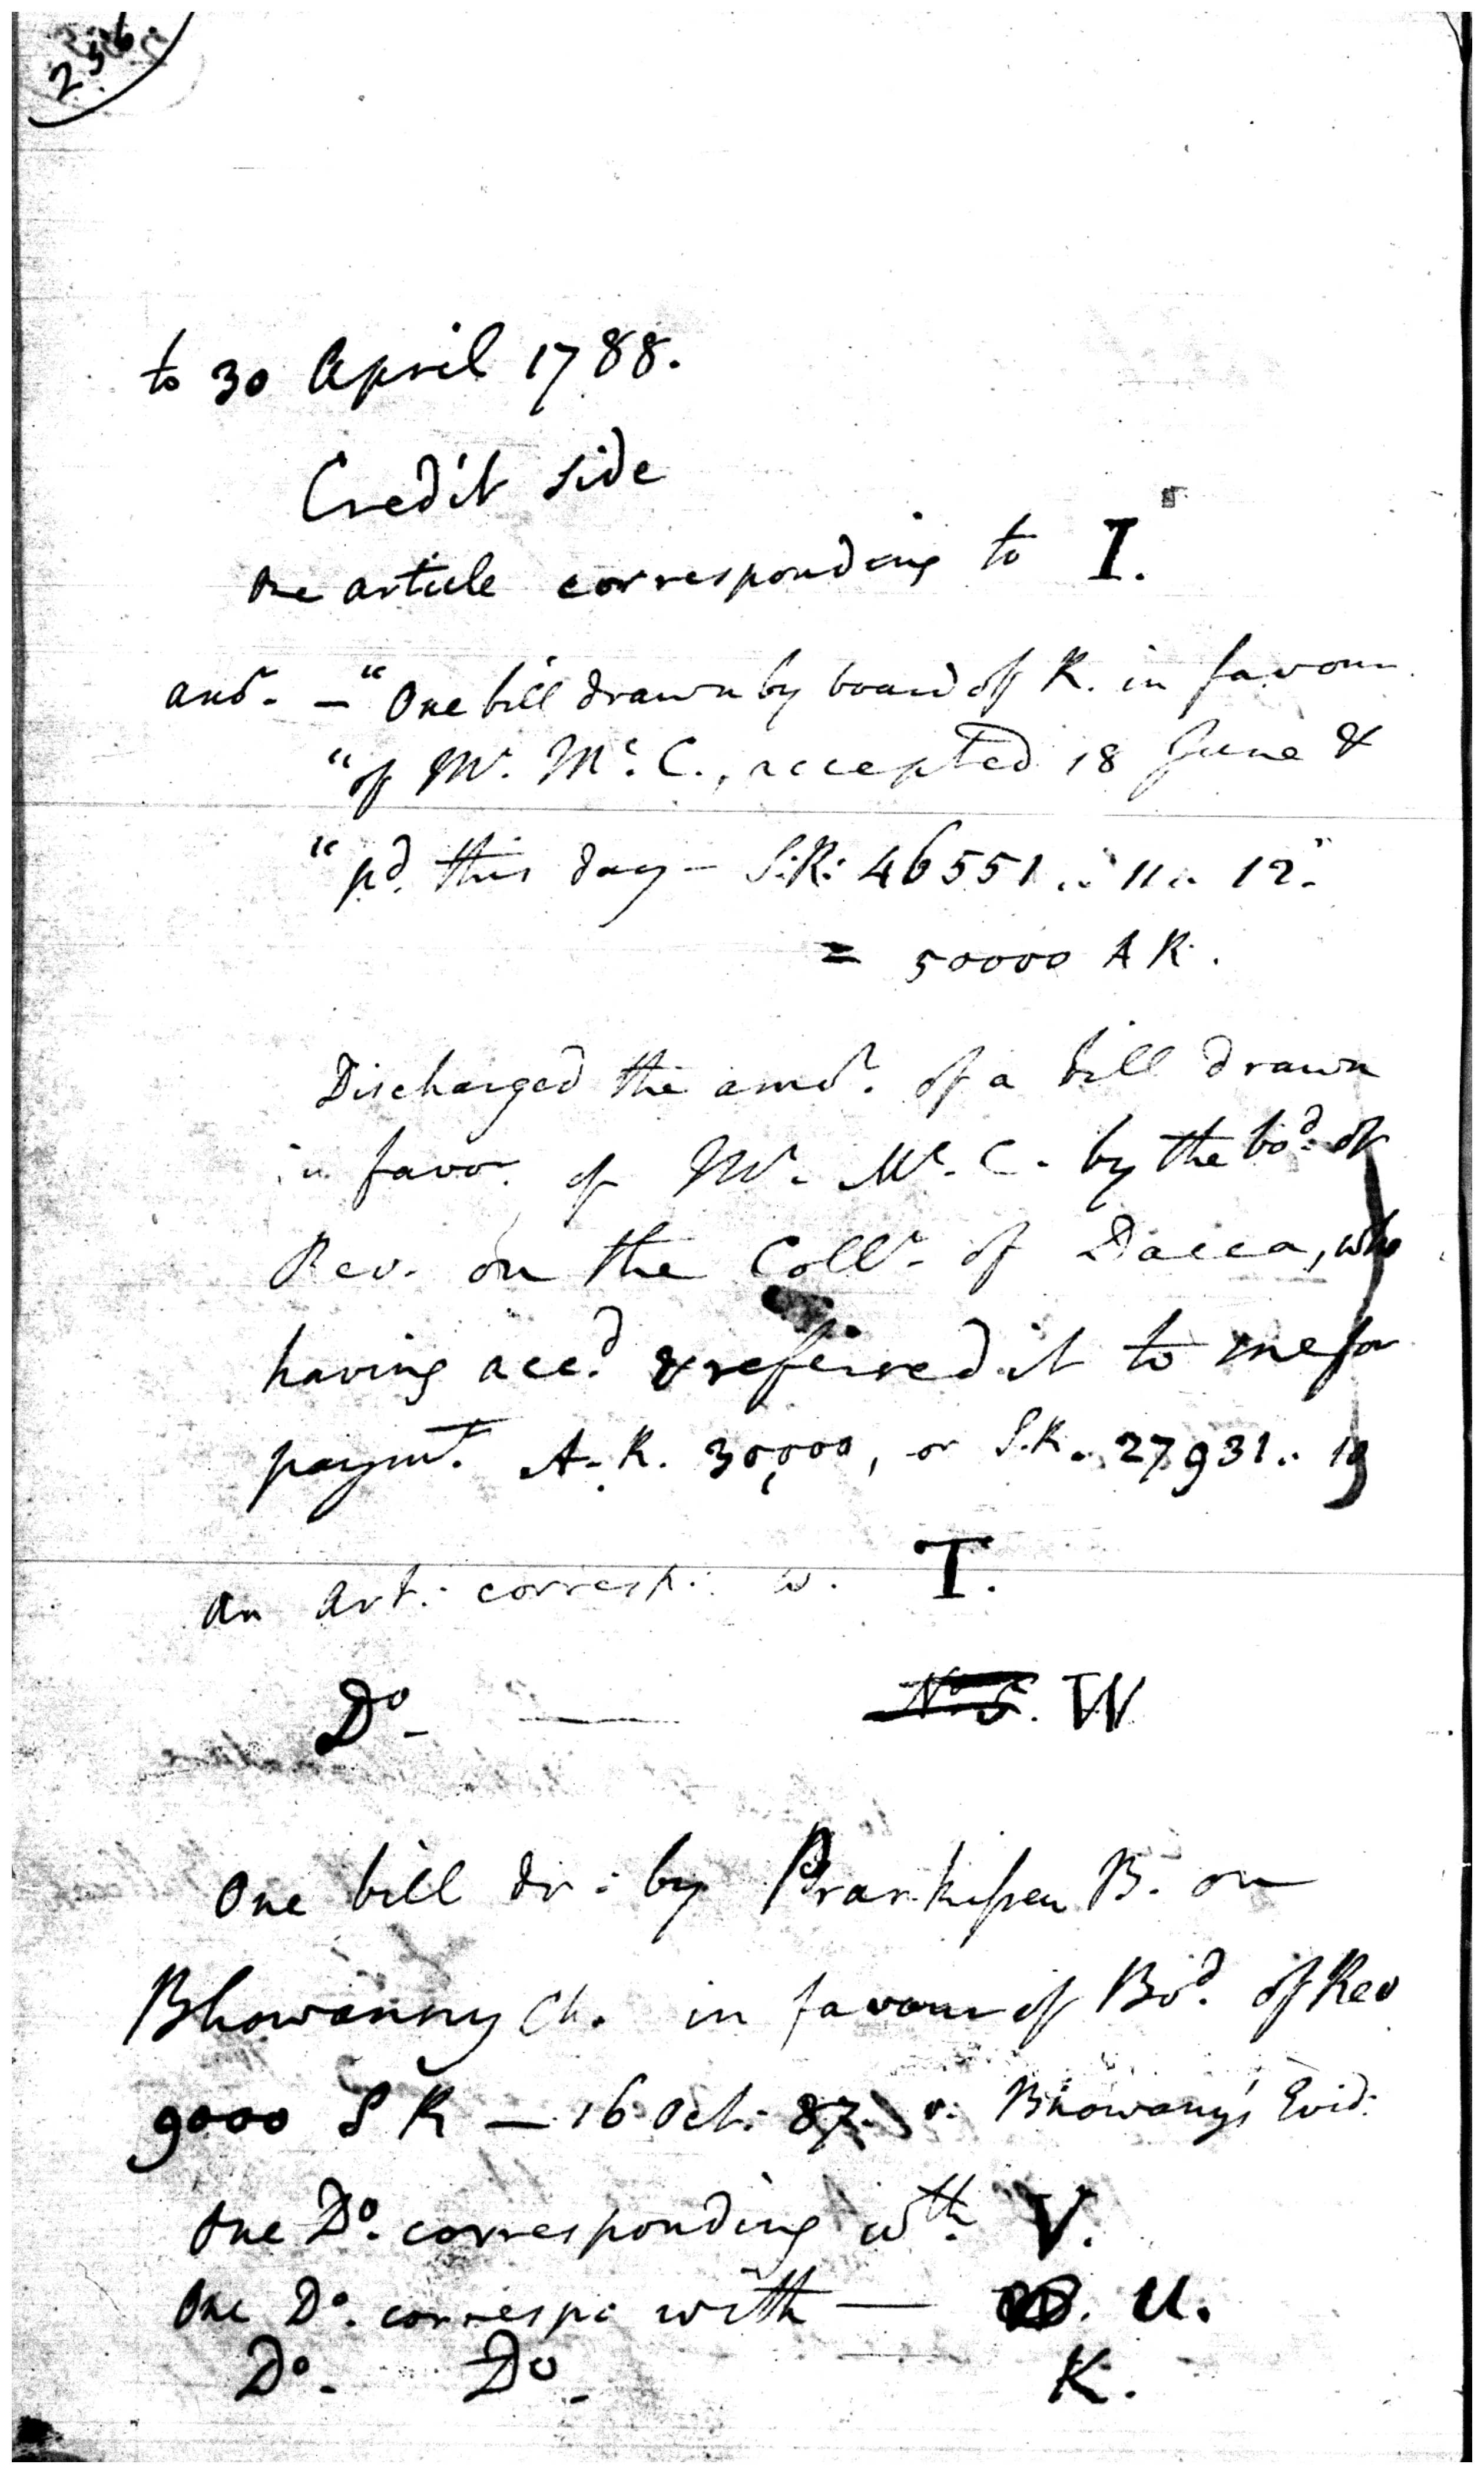 236
to 30 April 1788.
Credit side
One article corresponding to I.
anor. — "One bill drawn by board of R. in favour
"of Mr. Mc. C., accepted 18 June &
"pd. this day — S.R: 46551 .. 11 .. 12."
= 50000 A R.
Discharged the amot. of a bill drawn
in favor. of Mr. Mc. C. by the bod. of
Rev. on the Collr. of Dacca, who
having accd. & referred it to me for
paymt. A. R. 30,000, or S.R. 27931 .. 19
an art: corresp: w. T.
Do. — W
One bill dr: by Prankissen B. on
Bhowanny Ch. in favour of Bod. of Rev
9000 S R — 16 Oct: 87. v. Bhowany's Evid:
One Do. corresponding wth. V.
One Do. correspg with — U.
Do. Do. K.